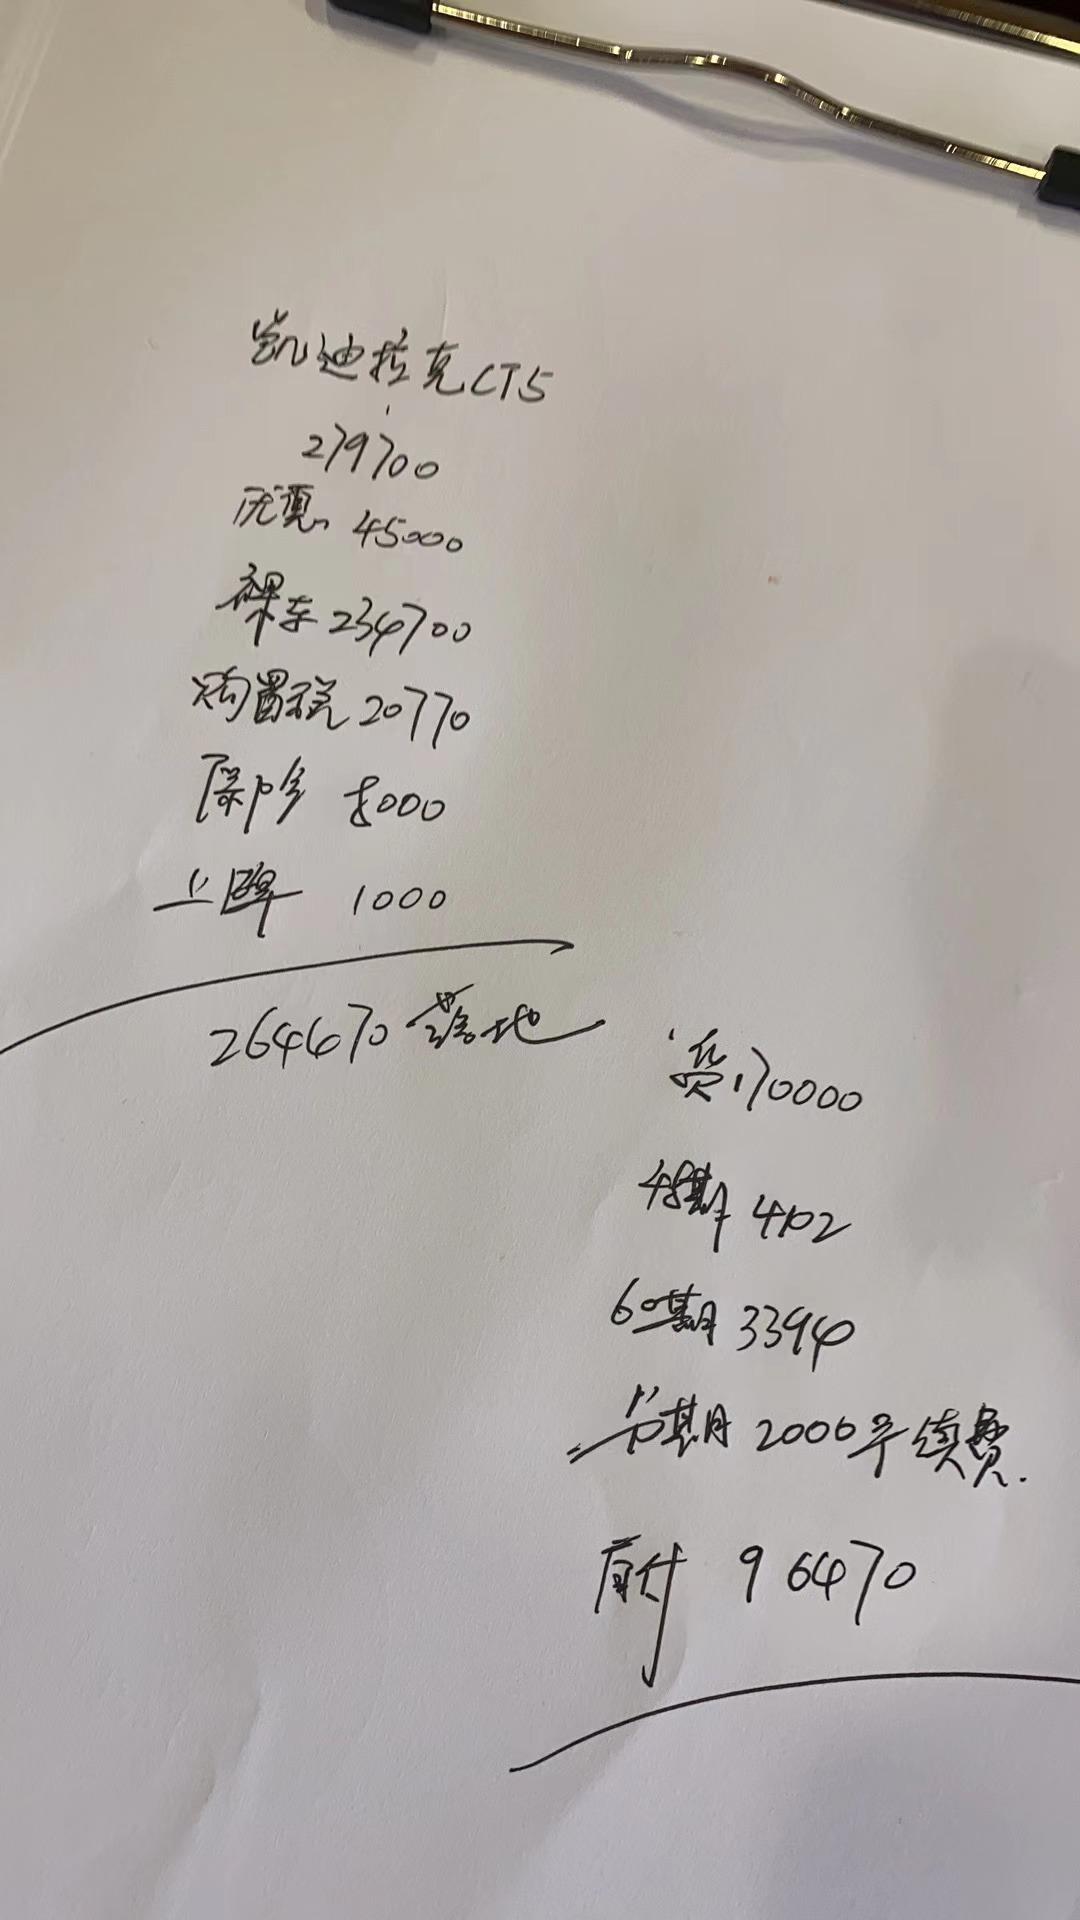 凯迪拉克CT5
279700
优惠 45000
裸车 234700
购置税 20770
保险 8000
上牌 1000
264470 落地
贷 170000
48期 4102
60期 3394
分期 2000手续费.
首付 96470